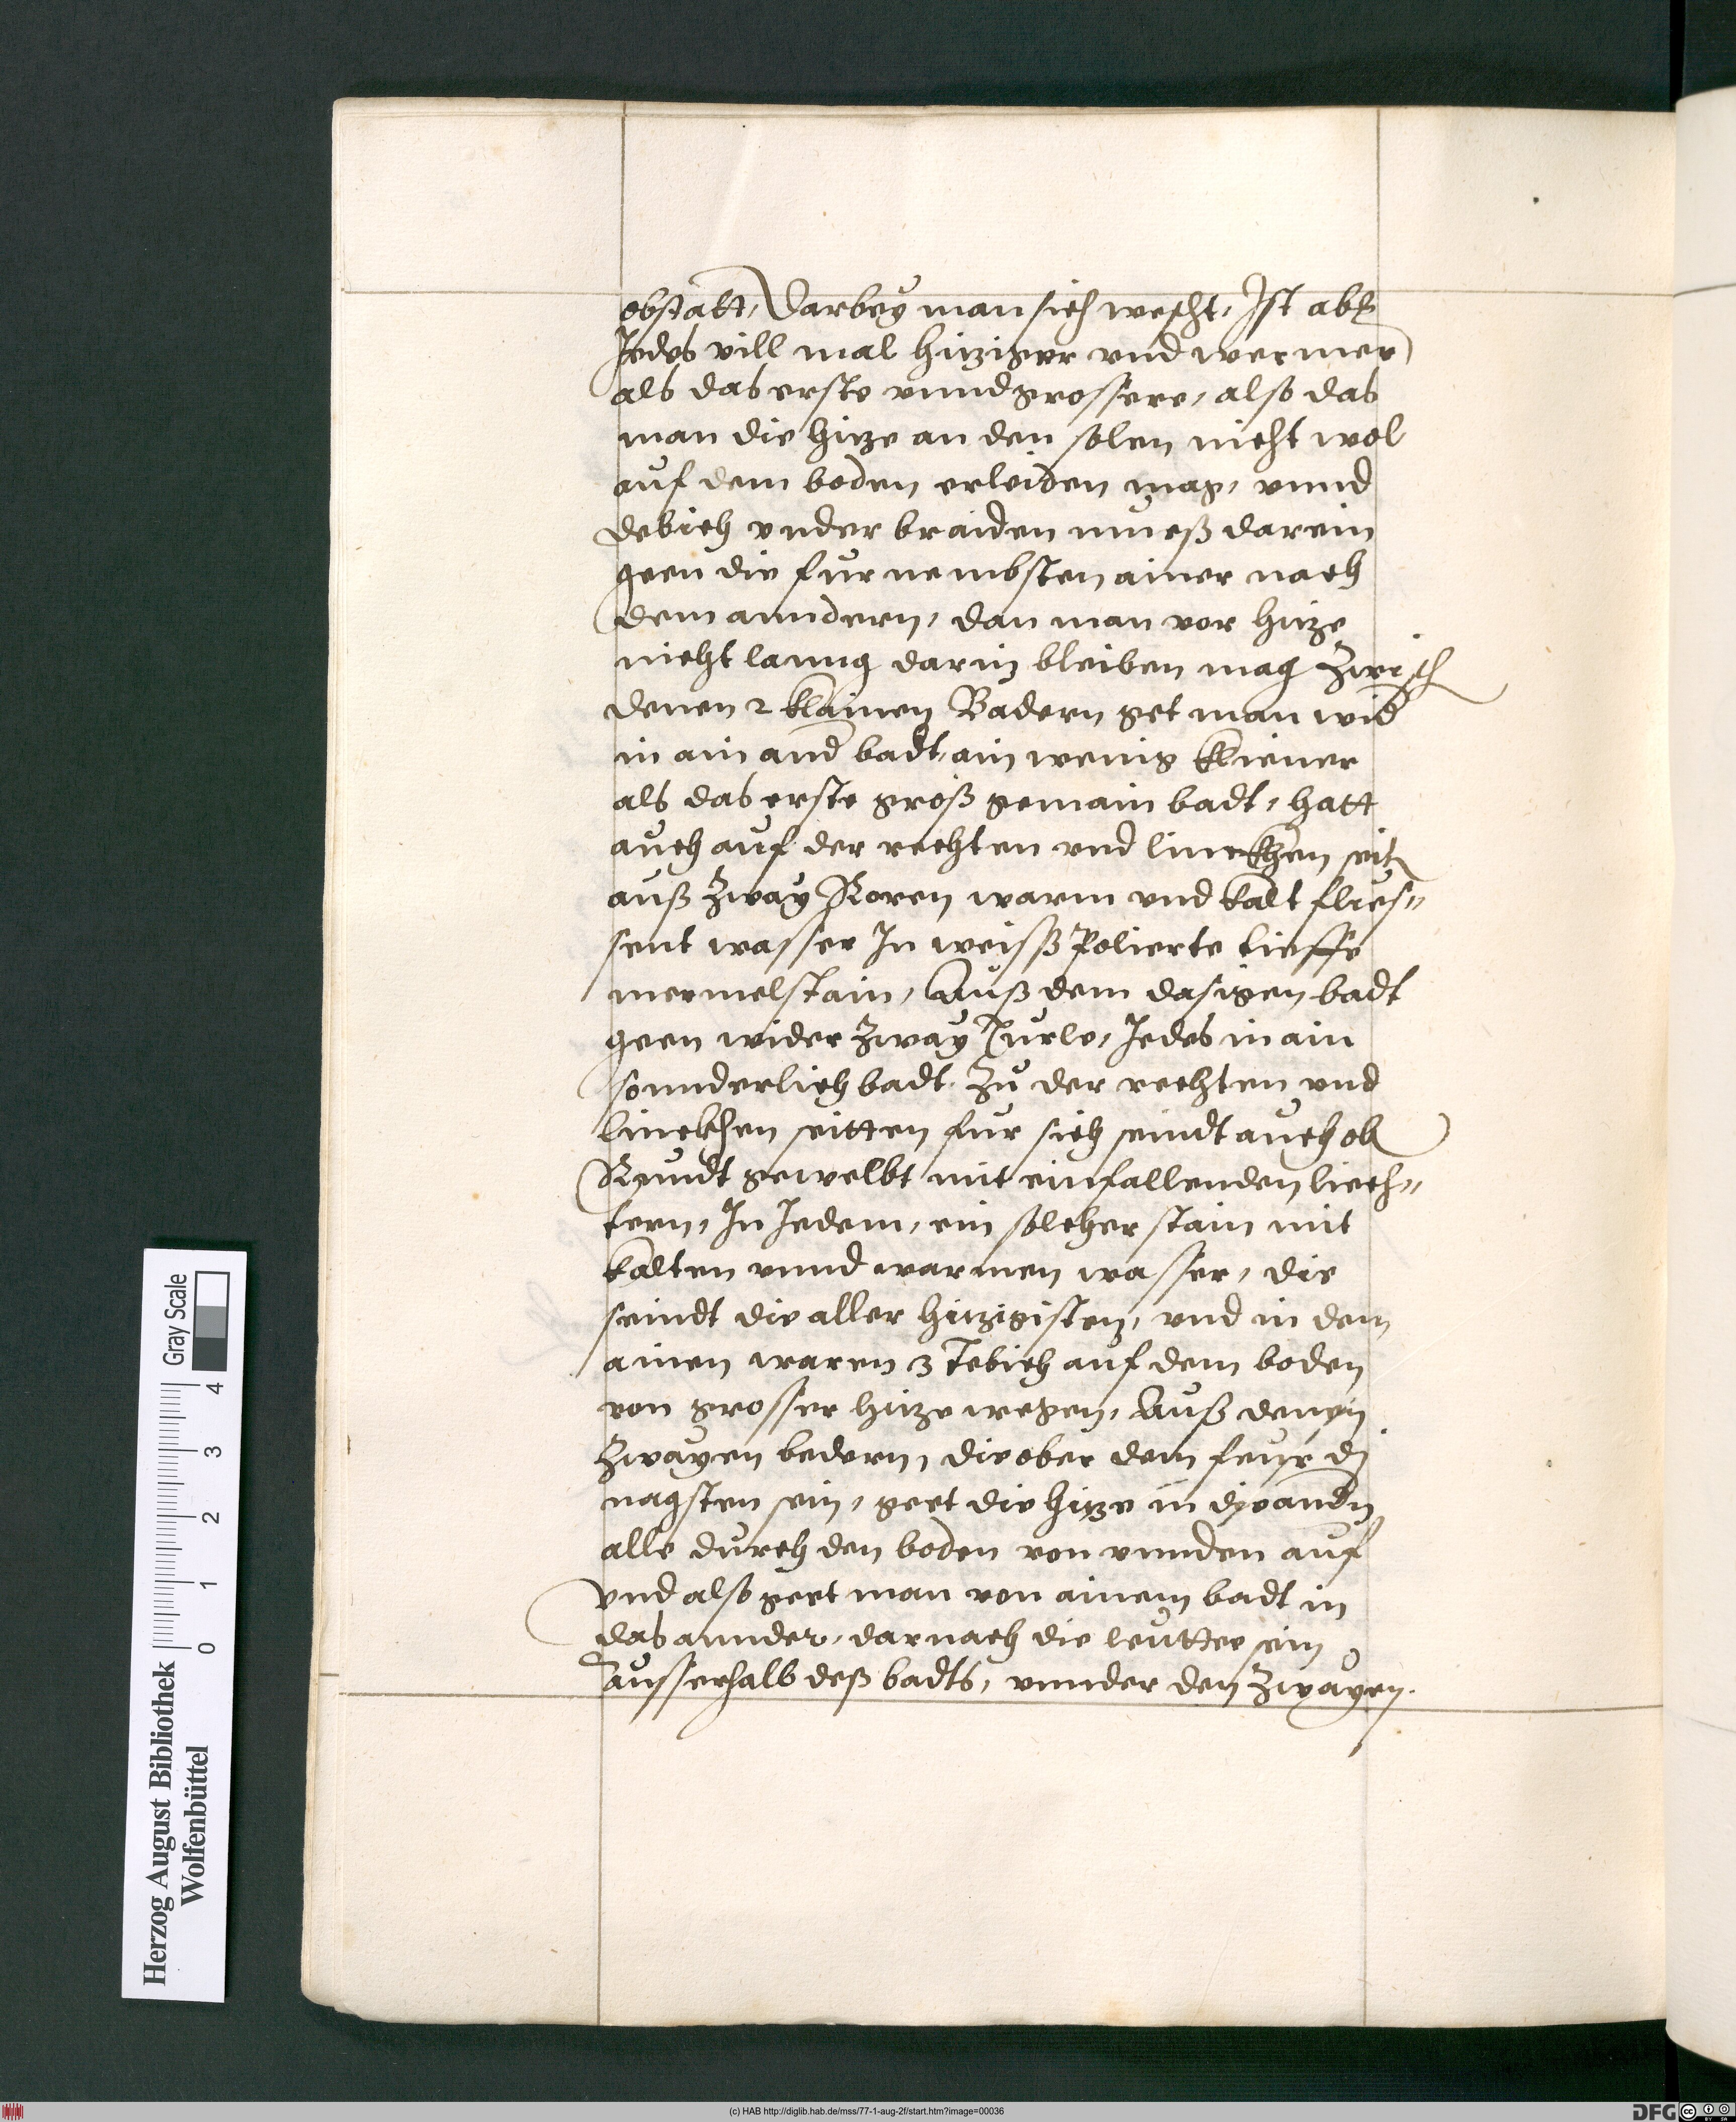 obstatt, Darbey man sich wescht, Ist aber
Jedes vill mal hitziger vnd wermer
als das erste vnnd grossere, also das
man die hitze an den solen nicht wol
auf dem boden erleiden mag, vnnd
debich vnder braiden mueß darein
geen die furnembsten ainer nach
dem anndern, dan man vor hitze
nicht lanng darin bleiben mag Zwisch
denen 2 klainen Badern get man wid
in ain and badt, ain wenig kliener
als das erste groß gemain badt, hatt
auch auf der rechten vnd linckhen seit
auß Zway Roren warm vnd kalt flies„
sent wasser In weiss Polierte tieffe
mermelstain, Auß dem dasigen badt
geen wider Zway Turle, Jedes in ain
sonnderlich badt, Zu der rechten vnd
linckhen seitten fur sich seindt auch ob
Rundt gewelbt mit einfallenden liech„
tern, In Jedem, ein solcher stain mit
kalten vnnd warmen wasser, die
seindt die aller hitzigisten, vnd in dem
ainen waren 3 Tebich auf dem boden
von grosser hitze wegen, Auß denen
Zwayen bedern, die ober dem feur di
nagsten sein, geet die hitze in die andn
alle durch den boden von vnnden auf
vnd also geet man von ainem badt in
das annder, darnach die leuttee sein
ausserhalb deß badts, vnnder den Zwayen
Herzog August Bibliothek
Wolfenbüttel
0 1 2 3 4
Gray Scale
(c) HAB http://diglib.hab.de/mss/77-1-aug-2f/start.htm?image=00036
DFG